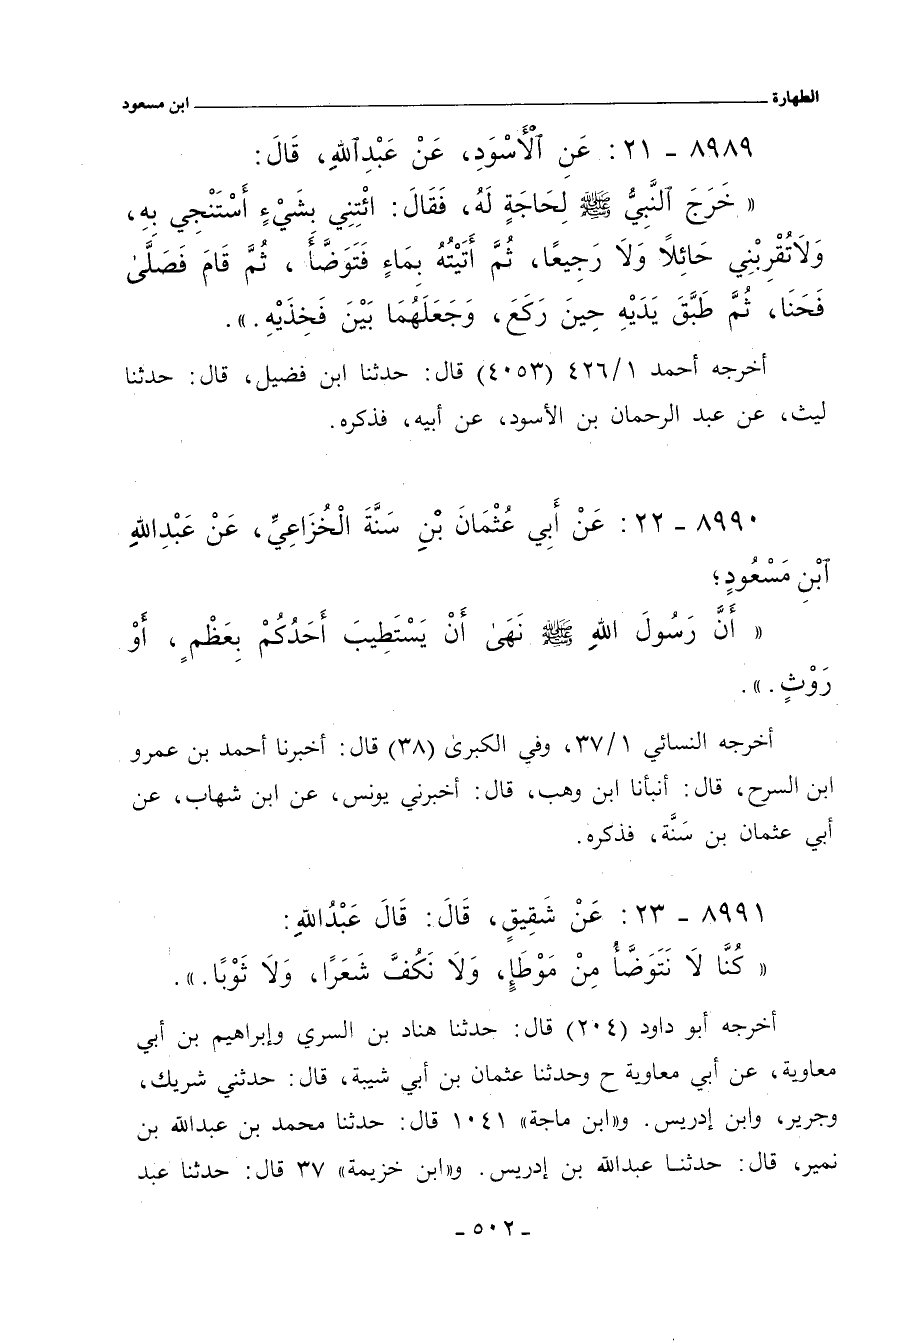 الطهارة ــــــــــ ابن مسعود
٨٩٨٩ - ٢١ : عَنِ ٱلْأَسْوَدِ، عَنْ عَبْدِٱللهِ، قَالَ:
« خَرَجَ ٱلنَّبِيُّ ﷺ لِحَاجَةٍ لَهُ، فَقَالَ: ائْتِنِي بِشَيْءٍ أَسْتَنْجِي بِهِ،
وَلَاتُقْرِبْنِي حَائِلاً وَلَا رَجِيعًا، ثُمَّ أَتَيْتُهُ بِمَاءٍ فَتَوَضَّأَ ، ثُمَّ قَامَ فَصَلَّىٰ
فَحَنَا، ثُمَّ طَبَّقَ يَدَيْهِ حِينَ رَكَعَ، وَجَعَلَهُمَا بَيْنَ فَخِذَيْهِ.».
أخرجه أحمد ٤٢٦/١ (٤٠٥٣) قال: حدثنا ابن فضيل، قال: حدثنا
ليث، عن عبد الرحمان بن الأسود، عن أبيه، فذكره.
٨٩٩٠ - ٢٢ : عَنْ أَبِي عُثْمَانَ بْنِ سَنَّةَ الْخُزَاعِيِّ، عَنْ عَبْدِاللهِ
ٱبْنِ مَسْعُودٍ؛
« أَنَّ رَسُولَ اللهِ ﷺ نَهَىٰ أَنْ يَسْتَطِيبَ أَحَدُكُمْ بِعَظْمٍ، أَوْ
رَوْثٍ.».
أخرجه النسائي ٣٧/١، وفي الكبرىٰ (٣٨) قال: أخبرنا أحمد بن عمرو
ابن السرح، قال: أنبأنا ابن وهب، قال: أخبرني يونس، عن ابن شهاب، عن
أبي عثمان بن سَنَّة، فذكره.
٨٩٩١ - ٢٣ : عَنْ شَقِيقٍ، قَالَ: قَالَ عَبْدُاللهِ:
« كُنَّا لَا نَتَوَضَّأُ مِنْ مَوْطَإٍ، وَلَا نَكُفَّ شَعَرًا، وَلَا ثَوْبًا.».
أخرجه أبو داود (٢٠٤) قال: حدثنا هناد بن السري وإبراهيم بن أبي
معاوية، عن أبي معاوية ح وحدثنا عثمان بن أبي شيبة، قال: حدثني شريك،
وجرير، وابن إدريس. و«ابن ماجة» ١٠٤١ قال: حدثنا محمد بن عبدالله بن
نمير، قال: حدثنا عبدالله بن إدريس. و«ابن خزيمة» ٣٧ قال: حدثنا عبد
- ٥٠٢ -